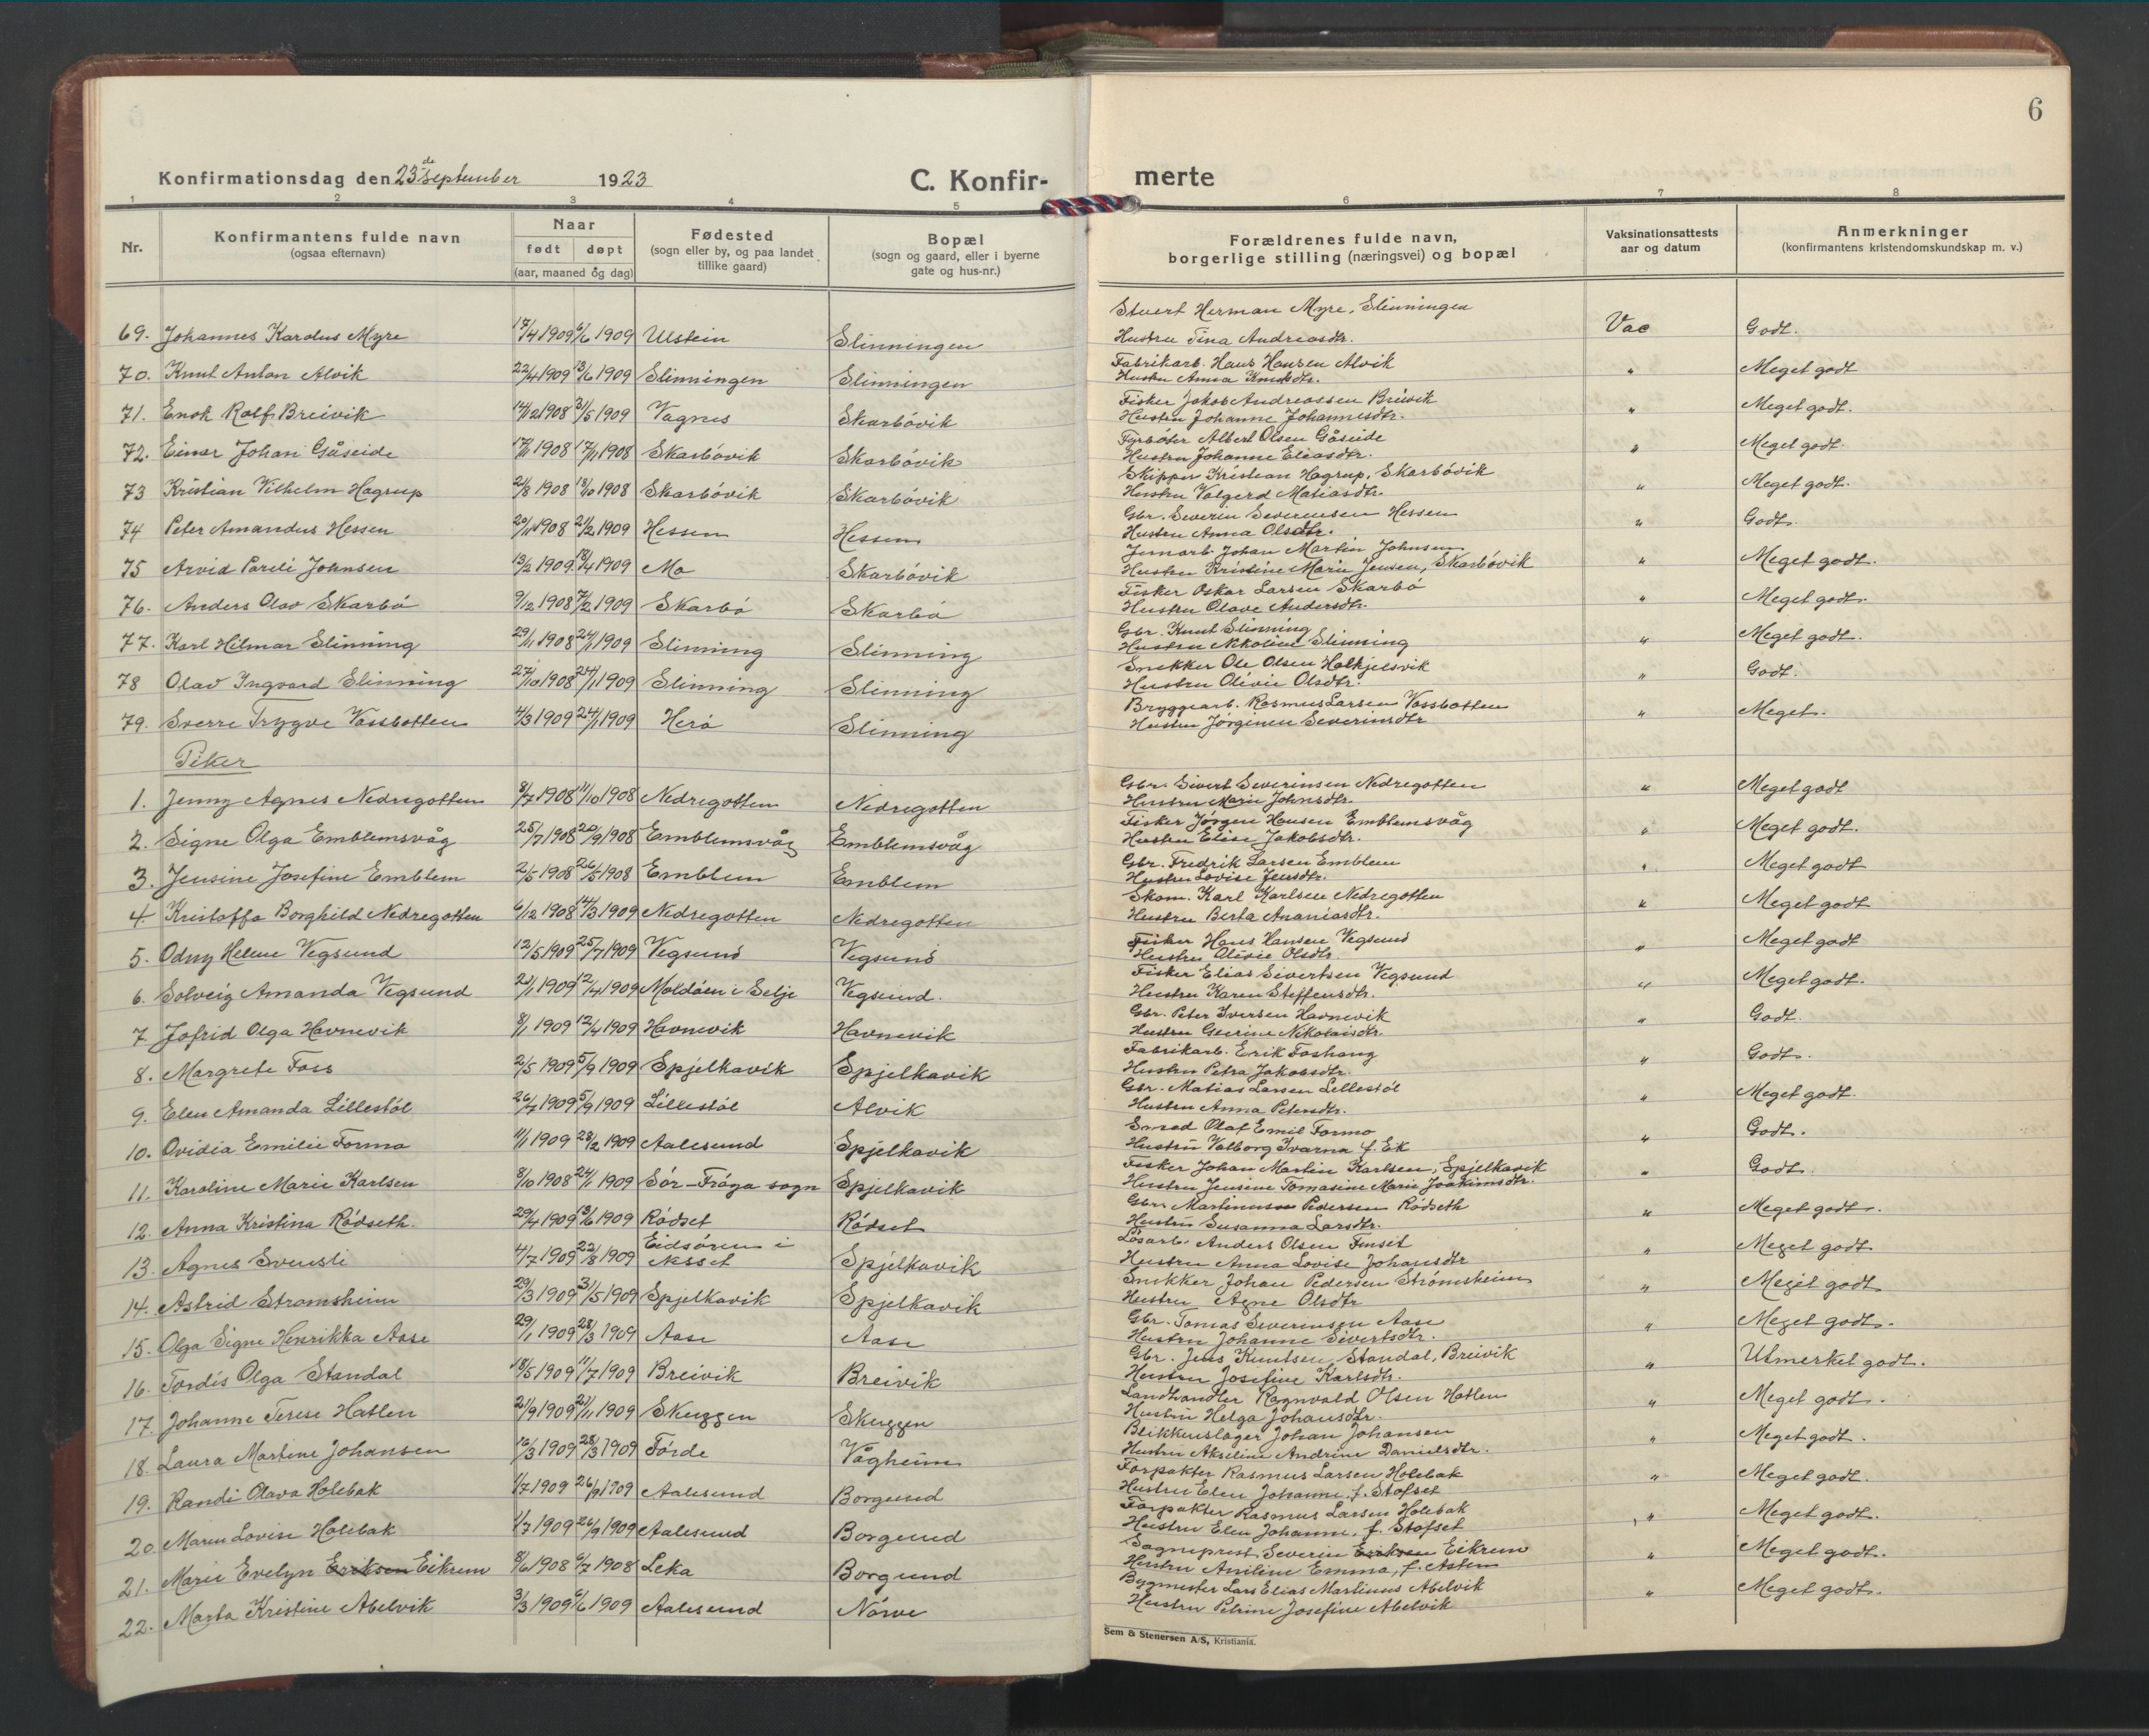 6
Konfirmationsdag den 23de september 1923
C. Konfir-
merte
1 2 3 4 5 6 7 8
Nr.
Konfirmantens fulde navn
(ogsaa efternavn)
Naar
født døpt
(aar, maaned og dag)
Fødested
(sogn eller by, og paa landet
tillike gaard)
Bopæl
(sogn og gaard, eller i byerne
gate og hus-nr.)
Forældrenes fulde navn,
borgerlige stilling (næringsvei) og bopæl
Vaksinationsattests
aar og datum
Anmerkninger
(konfirmantens kristendomskundskap m. v.)
Stuert Herman Myre, Slinningen
69. Johannes Karolus Myre 17/4 1909 6/6 1909 Ulstein Slinningen Hustru Tina Andreasdtr. Vac Godt.
Fabrikarb. Hans Hansen Alvik
70. Knut Anton Alvik 22/4 1909 13/6 1909 Slinningen Slinningen Hustru Anna Knutsdtr. " Meget godt
Fisker Jakob Andreassen Breivik
71. Enok Rolf Breivik 14/12 1908 31/5 1909 Vagnes Skarbövik Hustru Johanne Johannesdtr. " Meget godt.
Fyrböter Albert Olsen Gåseide
72. Einar Johan Gåseide 1908 1908 Skarbövik Skarbövik Hustru Johanne Eliasdtr. " Meget godt.
Skipper Kristian Hagrup, Skarbövik
73 Kristian Vilhelm Hagrup 2/8 1908 18/10 1908 Skarbövik Skarbövik Hustru Valgerd Matiasdtr. " Meget godt.
Gbr. Severin Severinsen Hessen
74 Peter Amandus Hessen 20/11 1908 21/2 1909 Hessen Hessen Hustru Anna Olsdtr. " Godt.
Jernarb. Johan Martin Johnsen
75 Arvid Pareli Johnsen 13/2 1909 18/4 1909 Mo Skarbövik Hustru Kristine Marie Jensen, Skarbövik " Meget godt.
Fisker Oskar Larsen Skarbö
76. Anders Olav Skarbö 9/12 1908 7/2 1909 Skarbö Skarbö Hustru Olave Andersdtr. " Meget godt.
Gbr. Knut Slinning
77. Karl Hilmar Slinning 29/11 1908 24/1 1909 Slinning Slinning Hustru Nikoline Slinning " Meget godt.
Snekker Ole Olsen Holkjelsvik
78 Olav Ingvard Slinning 27/10 1908 24/1 1909 Slinning Slinning Hustru Olivie Olsdtr. " Godt.
Bryggearb. Rasmus Larsen Vassbotten
79. Sverre Trygve Vassbotten 4/3 1909 24/1 1909 Herö Slinning Hustru Jørginen Severinsdtr " Meget.
Piker
Gbr. Sivert Severinsen Nedregotten
1. Jenny Agnes Nedregotten 8/7 1908 11/10 1908 Nedregotten Nedregotten Hustru Marie Johnsdtr. " Meget godt
Fisker Jörgen Hansen Emblemsvåg
2. Signe Olga Emblemsvåg 25/7 1908 20/9 1908 Emblemsvåg Emblemsvåg Hustru Elise Jakobsdtr. " Meget godt.
Gbr. Fredrik Larsen Emblem
3. Jensine Josefine Emblem 2/5 1908 26/5 1908 Emblem Emblem Hustru Lovise Jensdtr. " Meget godt
Skom. Karl Karlsen Nedregotten
4. Kristoffa Borghild Nedregotten 6/12 1908 14/3 1909 Nedregotten Nedregotten Hustru Berta Ananiasdtr. " Meget godt
Fisker Hans Hansen Vegsund
5. Odny Helene Vegsund 12/5 1909 25/7 1909 Vegsund Vegsund Hustru Olivie Olsdtr. " Meget godt
Fisker Elias Sivertsen Vegsund
6. Solveig Amanda Vegsund 21/1 1909 12/4 1909 Moldöen i Selje Vegsund. Hustru Karen Steffensdtr. " Meget godt.
Gbr. Peter Iversen Havnevik
7. Jofrid Olga Havnevik 8/1 1909 12/4 1909 Havnevik Havnevik Hustru Gurine Nikolaisdtr. " Godt.
Fabrikarb. Erik Foshaug
8. Margrete Foss 2/5 1909 5/9 1909 Spjelkavik Spjelkavik Hustru Petra Jakobsdtr. " Godt.
Gbr. Matias Larsen Lillestöl
9. Elen Amanda Lillestöl 26/7 1909 5/9 1909 Lillestöl Alvik Hustru Anna Petersdtr. " Meget godt.
Smed Olaf Emil Formo
10. Ovidia Emilie Formo 11/1 1909 28/2 1909 Aalesund Spjelkavik Hustru Valborg Ivarna f. Eik " Godt.
Fisker Johan Martin Karlsen, Spjelkavik
11. Karoline Marie Karlsen 8/10 1908 24/1 1909 Sör-Fröya sogn Spjelkavik Hustru Jensine Tomasine Marie Joakimsdtr. " Godt.
Gbr. Martinus Pedersen Rödseth
12. Anna Kristina Rödseth. 29/4 1909 13/6 1909 Rödset Rödset Hustru Susanna Larsdtr. " Meget godt.
Lösarb. Anders Olsen Finset
13. Agnes Svensli 4/7 1909 22/8 1909 Eidsören i Nesset Spjelkavik Hustru Anna Lovise Johansdtr " Meget godt
Snekker Johan Pedersen Strömsheim
14. Astrid Stromsheim 29/3 1909 31/5 1909 Spjelkavik Spjelkavik Hustru Agne Olsdtr " Meget godt
Gbr. Tomas Severinsen Aase
15. Olga Signe Henrikka Aase 29/1 1909 28/3 1909 Aase Aase Hustru Johanne Sivertsdtr. " Meget godt.
Gbr. Jens Knutsen Standal, Breivik
16. Tordis Olga Standal 18/5 1909 11/7 1909 Breivik Breivik Hustru Josefine Karlsdtr. " Utmerket godt.
Landhandler Ragnvald Olsen Hatlen
17. Johanne Terese Hatlen 21/9 1909 21/11 1909 Skuggen Skuggen Hustru Helga Johansdtr. " Meget godt.
Blikkenslager Johan Johansen
18. Laura Martine Johansen 16/3 1909 28/3 1909 Förde Vågheim Hustru Akseline Andrine Danielsdtr. " Meget godt.
Forpakter Rasmus Larsen Holebak
19. Randi Olava Holebak 1/7 1909 26/9 1909 Aalesund Borgund Hustru Elen Johanne, f. Stofset " Meget godt.
Forpakter Rasmus Larsen Holebak
20. Maren Lovise Holebak 1/7 1909 26/9 1909 Aalesund Borgund Hustru Elen Johanne, f. Stofset " Meget godt.
Sogneprest Severin Eriksen Eikrem
21. Marie Evelyn Eriksen Eikrem 8/6 1908 6/7 1908 Leka Borgund Hustru Aniline Emma, f. Astem " Meget godt.
Bygmester Lars Elias Martinus Abelvik
22. Marta Kristine Abelvik 3/3 1909 6/6 1909 Aalesund Nörve Hustru Petrine Josefine Abelvik " Meget godt.
Sem & Stenersen A/S, Kristiania.